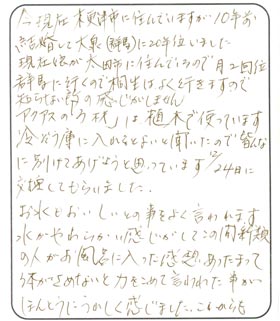 今現在 木更津市に住んでいますが10年前
結婚して大泉(群馬)に20年位いました
現在娘が太田市に住んでいるので月2回位
群馬に行くので桐生はよく行きますので
知らない所の感じがしません
アクアスの「力林」は植木で使っています
冷ぞう庫に入れるとよいと聞いたので皆んな
に分けてあげようと思っています 12/24日に
交換してもらいました.
お水とおいしいとの事をよく言われます
水がやわらかい感じがしてこの間親類
の人がお風呂に入った感想、あたたまって
体がさめないと力をこめて言われた事が
ほんとうにうれしく感じました。これからも